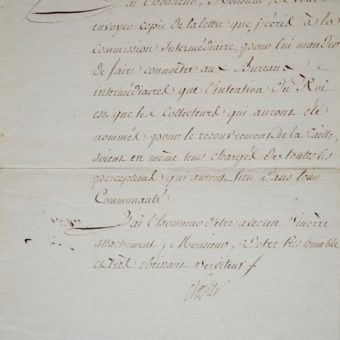 J'ai l'honneur, Monsieur, de vous
envoyer copie de la lettre que j'écris à la
Commission Intermédiaire, pour lui mander
de faire connoître au Bureau
intermédiaires que l'intention du Roi
est que les Collecteurs qui auront été
nommés pour le recouvrement de la Taille,
soient en même tems chargés de toutes les
perceptions qui auront lieu dans leur
Communauté
J'ai l'honneur d'être avec un sincère
attachement, Monsieur, votre très humble
et très obéissant serviteur